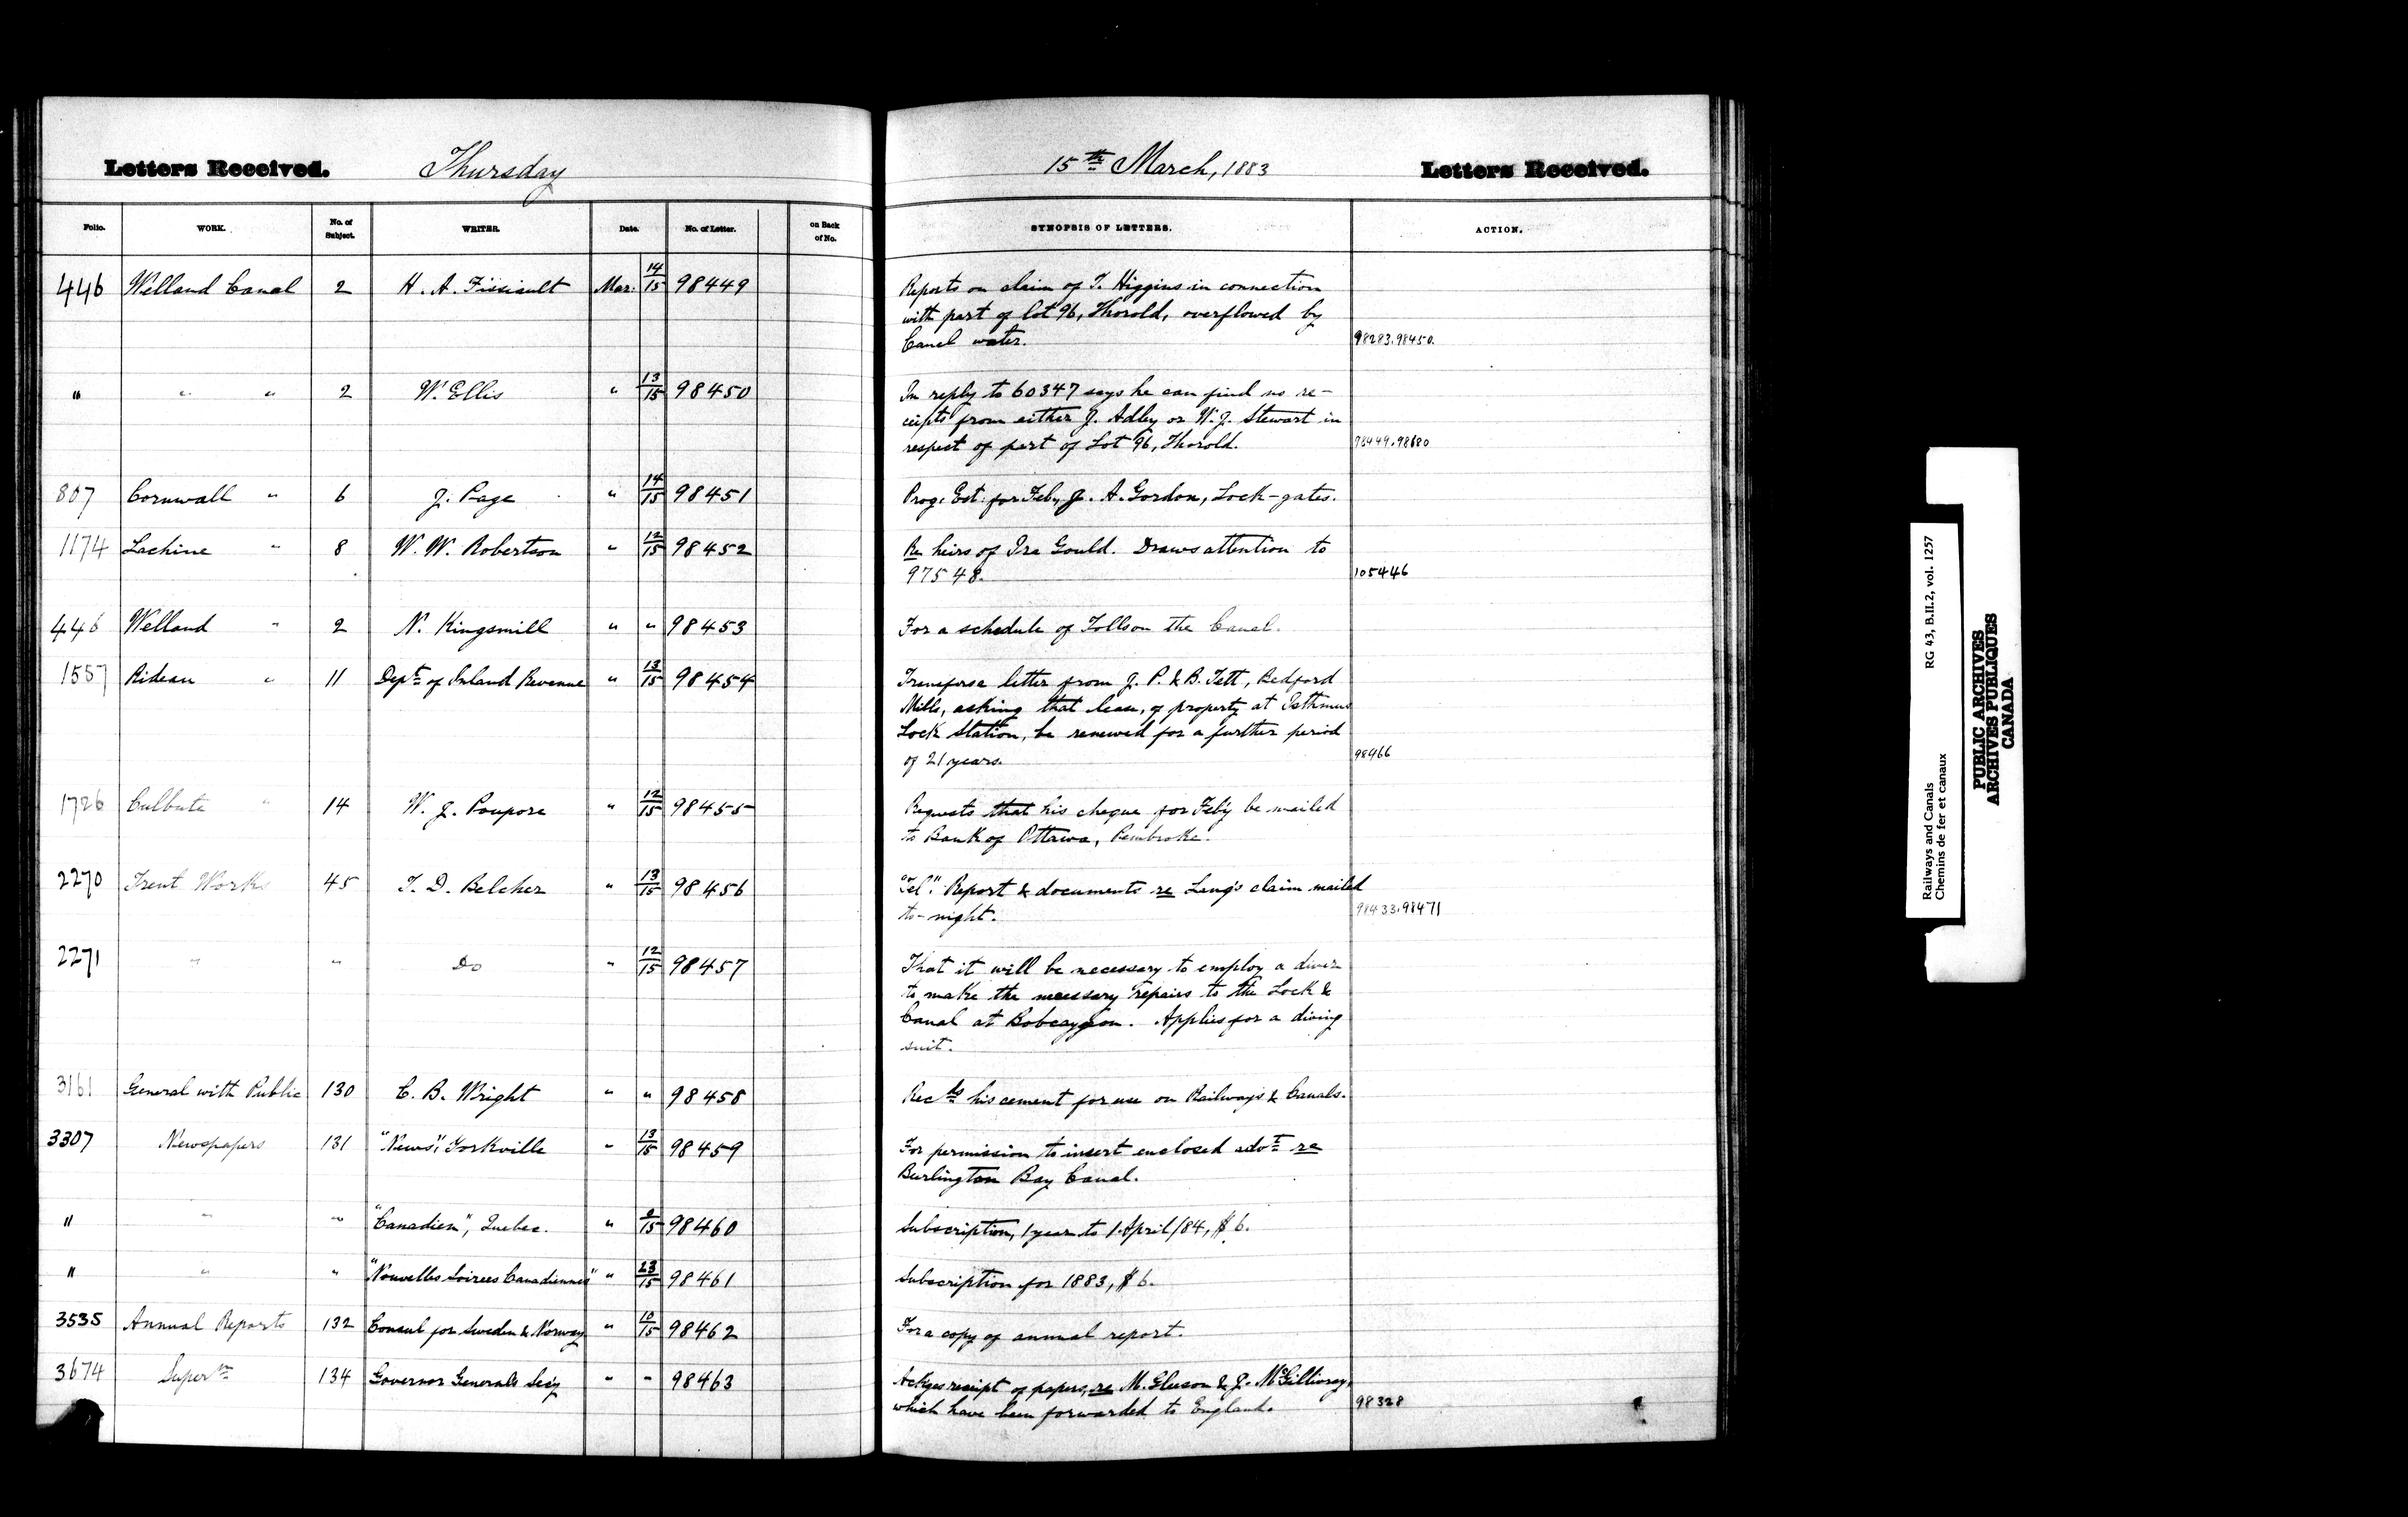 Letters Received. Thursday 15th March, 1883 Letters Received.
Folio. WORK. No. of Subject. WRITER. Date. No. of Letter. on Back of No. SYNOPSIS OF LETTERS. ACTION.
446 Welland Canal 2 H. A. Fissiault Mar. 14/15 98449 Reports on claim of T. Higgins in connection
with part of lot 96, Thorold, overflowed by
Canal water. 98283.98450.
" " " 2 W. Ellis " 13/15 98450 In reply to 60347 says he can find no re-
ceipts from either J. Adley or W. J. Stewart in
respect of part of Lot 96, Thorold. 98449.98680
807 Cornwall " 6 J. Page " 14/15 98451 Prog. Est: for Feby, J. A. Gordon, Lock-gates.
1174 Lachine " 8 W. W. Robertson " 12/15 98452 Re heirs of Ira Gould. Draws attention to
97548. 105446
446 Welland " 2 N. Kingsmill " " 98453 For a schedule of Tolls on the Canal.
1557 Rideau " 11 Dept of Inland Revenue " 13/15 98454 Transfers a letter from J. P. & B. Tett, Bedford
Mills, asking that lease, of property at Isthmus
Lock Station, be renewed for a further period
of 21 years. 98966
1726 Culbute " 14 W. J. Poupore " 12/15 98455 Requests that his cheque for Feb'y be mailed
to Bank of Ottawa, Pembroke.
2270 Trent Works 45 T. D. Belcher " 13/15 98456 "Tel". Report & documents re Lang's claim mailed
to-night. 98433.98471
2271 " " Do " 12/15 98457 That it will be necessary to employ a diver
to make the necessary repairs to the Lock &
Canal at Bobcaygeon. Applies for a diving
suit.
3161 General with Public 130 C. B. Wright " " 98458 Recds his cement for use on Railways & Canals.
3307 Newspapers 131 "News", Yorkville " 13/15 98459 For permission to insert enclosed advt re
Burlington Bay Canal.
" " " "Canadien", Quebec. " 9/15 98460 Subscription, 1 year to 1 April/84, $6.
" " " "Nouvelles Soirees Canadiennes" " 23/15 98461 Subscription for 1883, $6.
3535 Annual Reports 132 Consul for Sweden & Norway " 10/15 98462 For a copy of annual report.
3674 Supern 134 Governor General's Sec'y " " 98463 Ackges receipt of papers, re M. Gleeson & J. McGillivray,
which have been forwarded to England. 98328
Railways and Canals RG 43, B.II.2, vol. 1257
Chemins de fer et canaux
PUBLIC ARCHIVES
ARCHIVES PUBLIQUES
CANADA